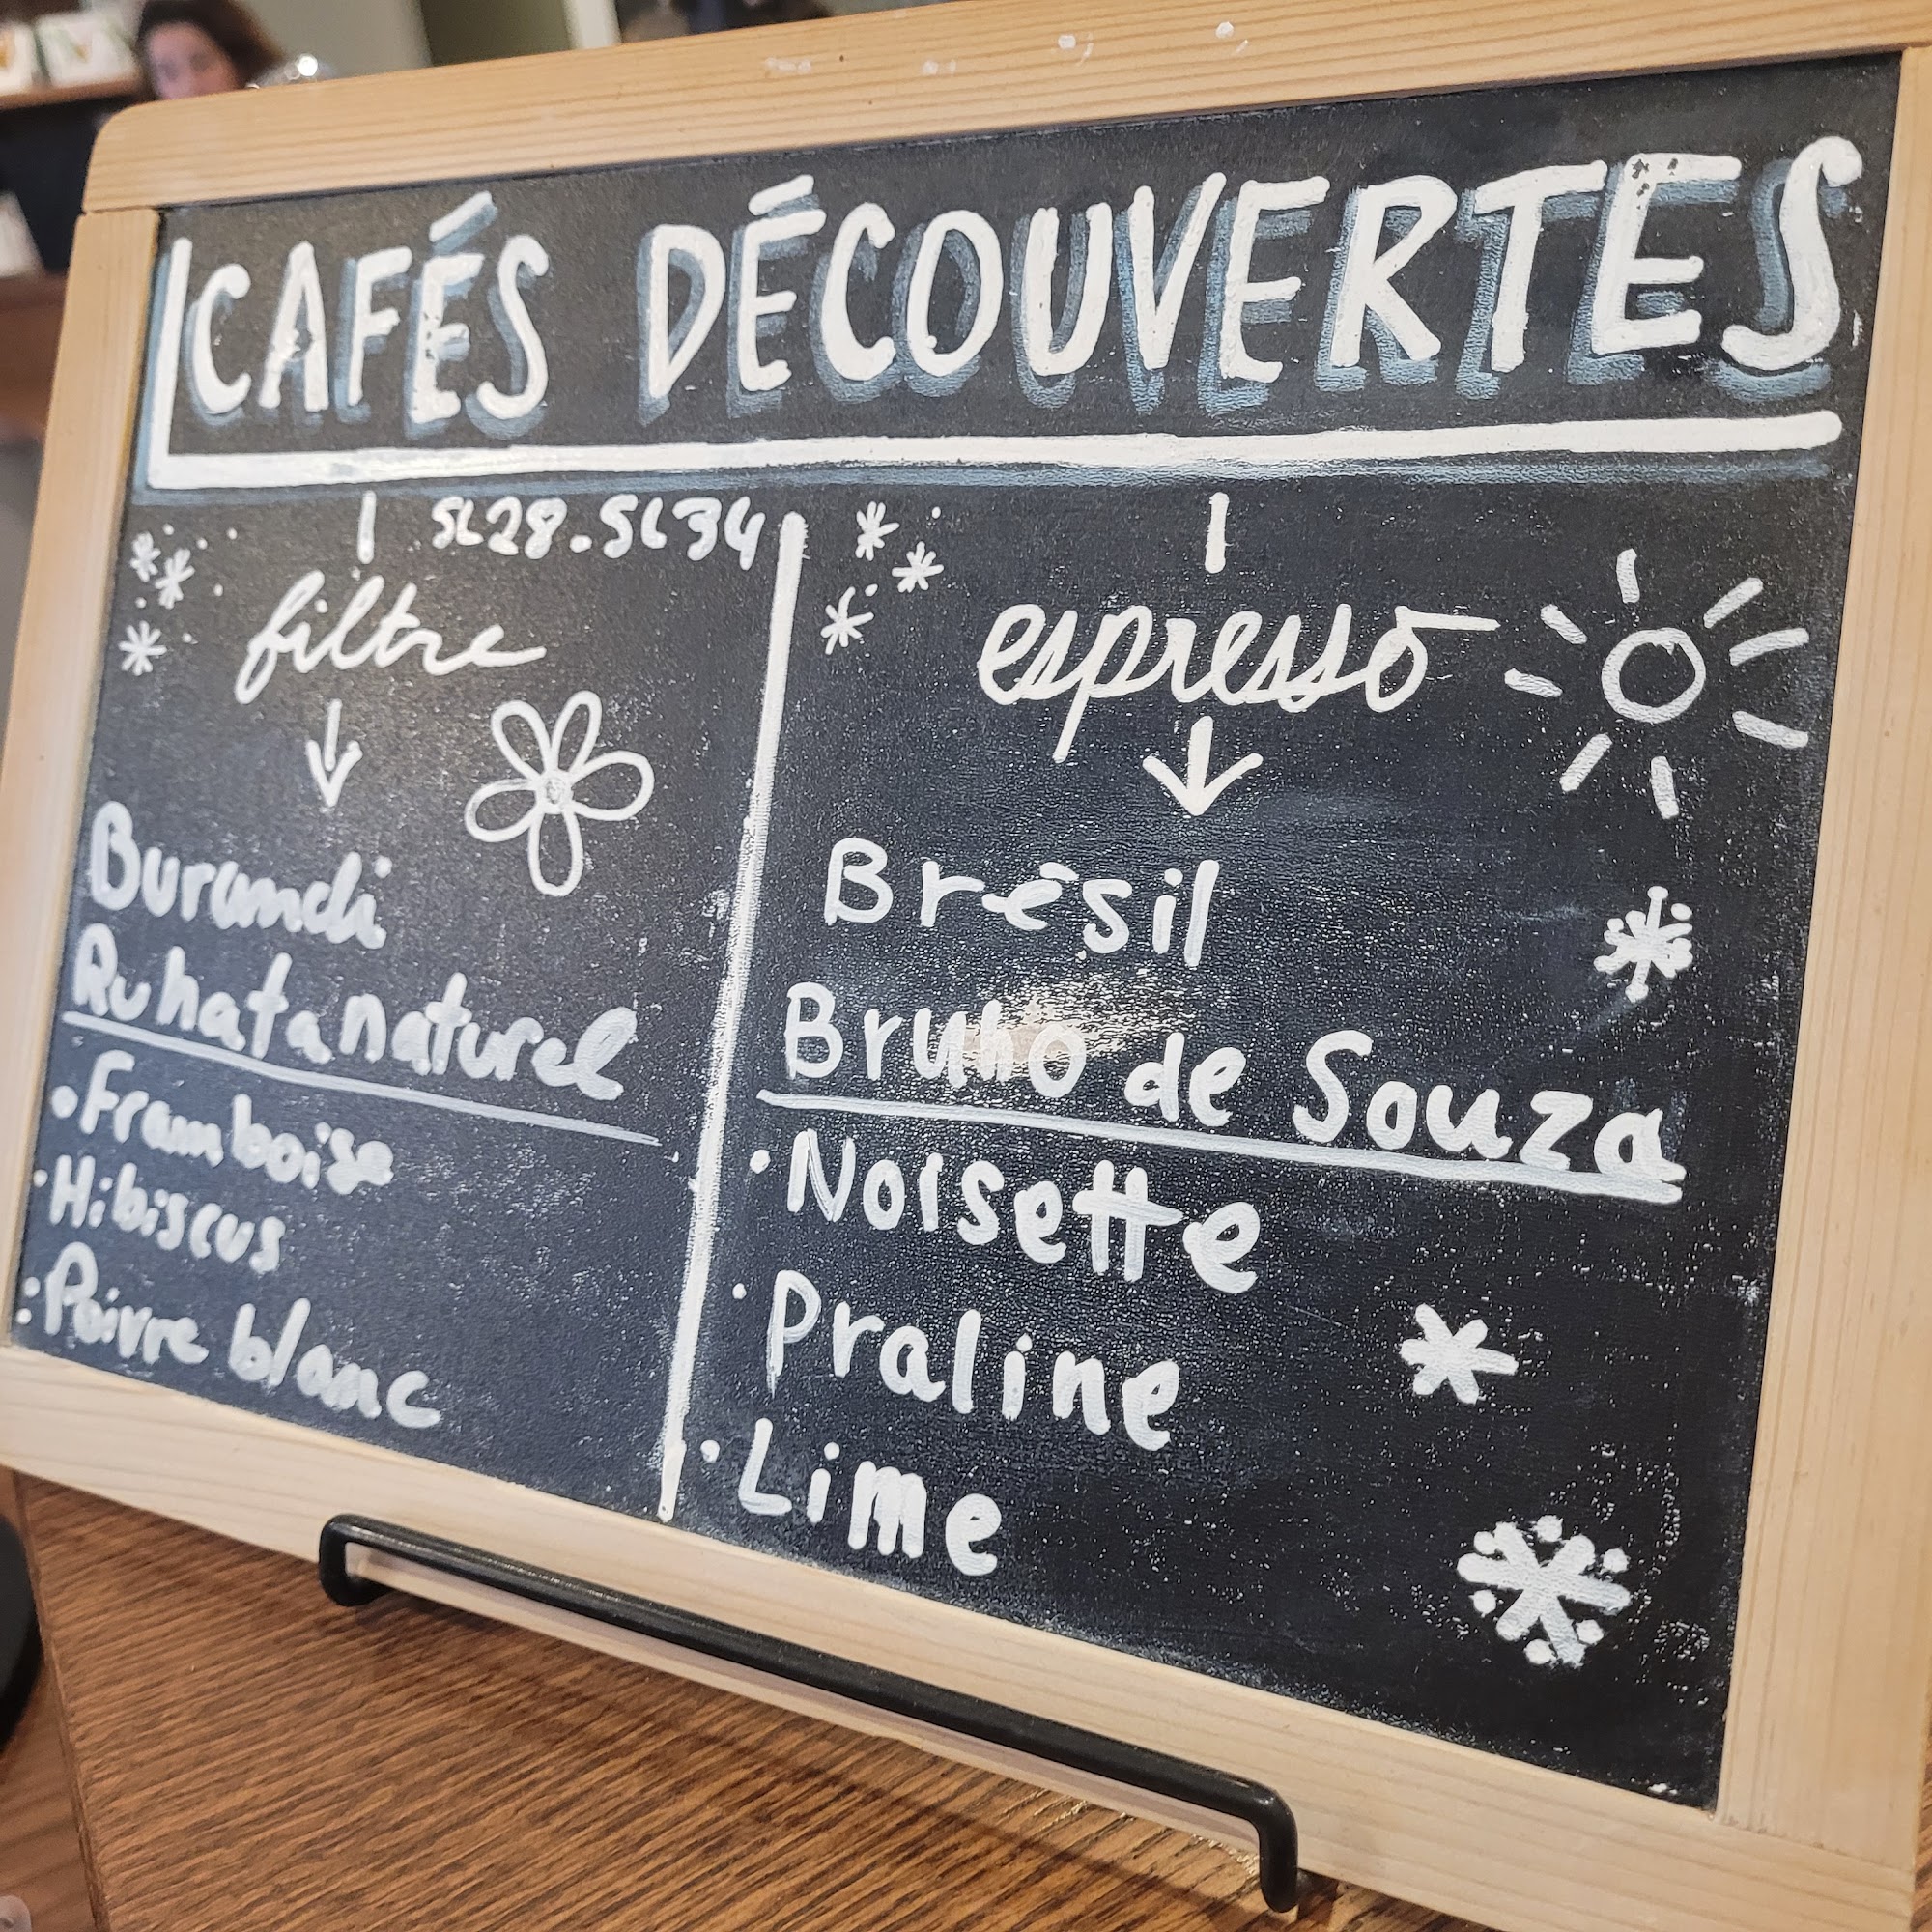 CAFÉS DÉCOUVERTES
SL28.SL34
filtre
Burundi
Ruhata naturel
• Framboise
• Hibiscus
• Poivre blanc
espresso
Brésil
Bruno de Souza
• Noisette
• Praline
• Lime